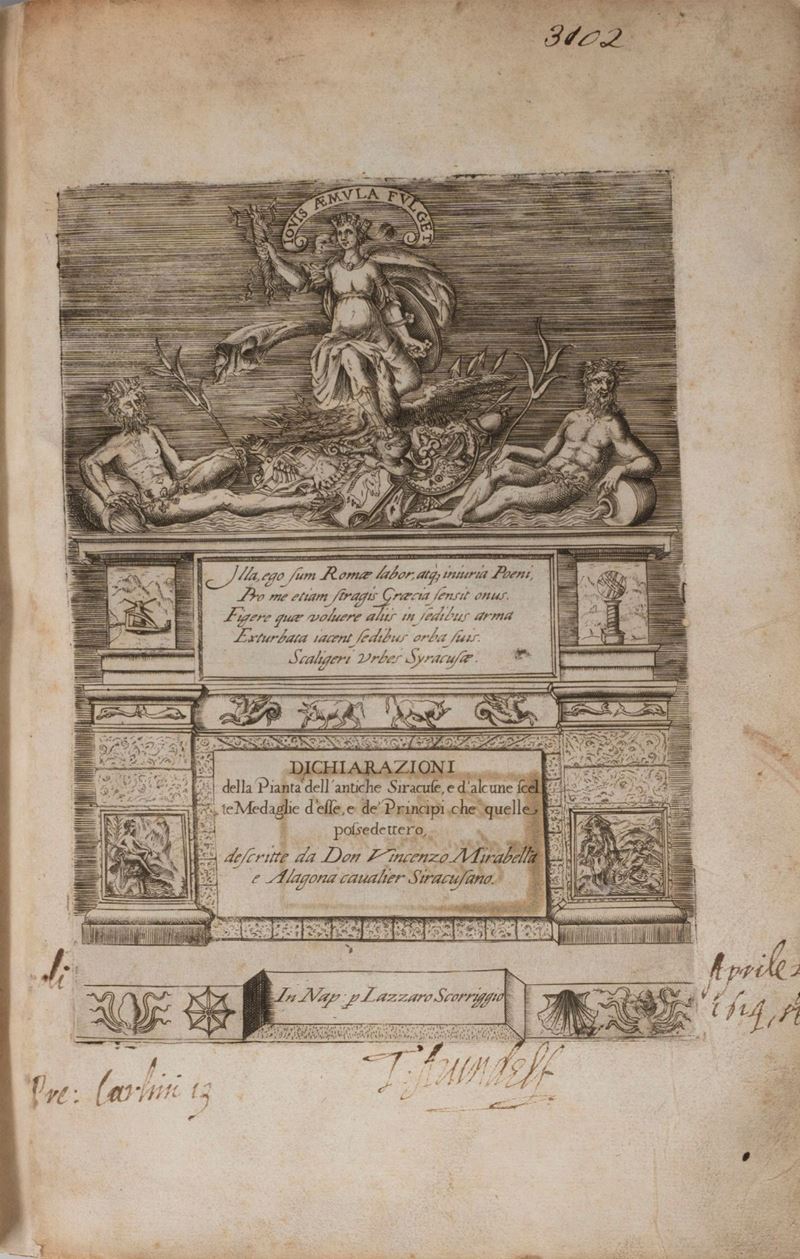 3102
IOVIS ÆMVLA FVLGET
Illa, ego sum Romæ labor, atq; iniuria Poeni,
Pro me etiam stragis Græcia sensit onus.
Figere quæ voluere alijs in sedibus arma
Exturbata iacent sedibus orba suis.
Scaligeri Vrbes Syracusæ.
DICHIARAZIONI
della Pianta dell'antiche Siracuse, e d'alcune scel
te Medaglie d'esse, e de' Principi che quelle
possedettero,
descritte da Don Vincenzo Mirabella
e Alagona caualier Siracusano.
li
Aprile
In Nap: p Lazzaro Scorriggio
1614,
T: Arundell
Pre: Carlini 13